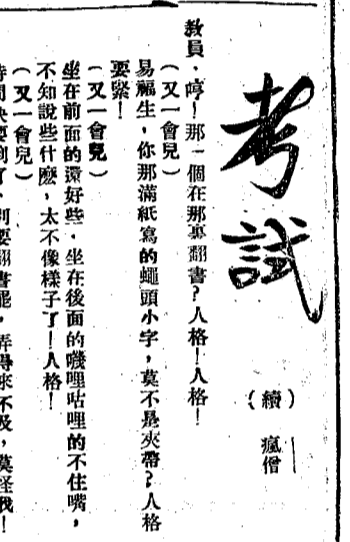 考試
（續）
瘋僧
教員，哼！那一個在那裏翻書？人格！人格！
（又一會兒）
易福生，你那滿紙寫的蠅頭小字，莫不是夾帶？人格
要緊！
（又一會兒）
坐在前面的還好些，坐在後面的嘰哩咕哩的不住嘴，
不知說些什麽，太不像樣子了！人格！
（又一會兒）
時間快要到了，別要翻書罷，弄得來不及，莫怪我！